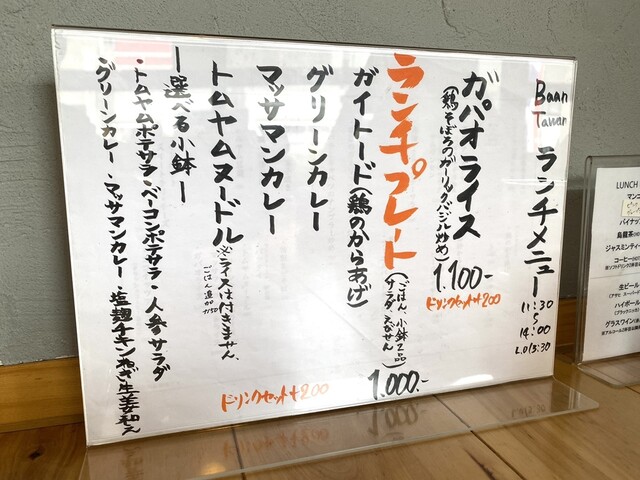 Baan
Tawan
ランチメニュー
11:30
〜
14:00
L.O13:30
ガパオライス
(鶏そぼろのガーリックバジル炒め)
1.100-
ドリンクセット+200
ランチプレート
(ごはん、小鉢2品
サラダ、えびせん)
1.000.-
ガイトード(鶏のからあげ)
グリーンカレー
マッサマンカレー
トムヤムヌードル
※ライスは付きません。
ごはん追加
+150
ドリンクセット+200
ー選べる小鉢ー
・トムヤムポテサラ・ベーコンポテサラ・人参サラダ
・グリーンカレー・マッサマンカレー・塩麹チキンねぎ生姜和え
LUNCH
マンゴ
パイナッ
烏龍茶
ジャスミンティ
コーヒー
生ビール
(アサヒ スーパード
ハイボー
(ブラックニッカ)
グラスワイン